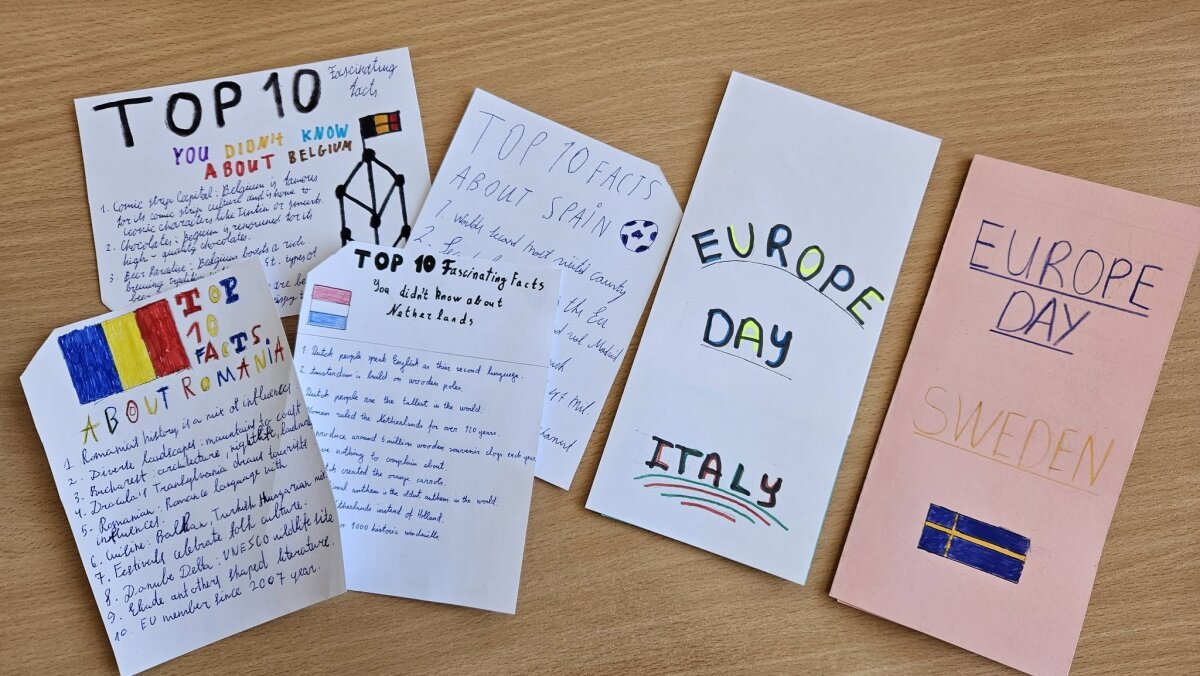 TOP 10 Fascinating
facts
YOU DIDN'T KNOW
ABOUT BELGIUM
1. Comic strip Capital: Belgium is famous
for its comic strip culture and is home to
iconic characters like Tintin or smurfs.
2. Chocolates: Belgium is renowned for its
high-quality chocolates.
3. Beer Paradise: Belgium boasts a rich
brewing
St. types of
are be
TOP 10 FACTS
ABOUT SPAIN
1. Worlds second most visitid country
2.
the Eu
Real Madrid
47 mil.
TOP
10
FACTS
ABOUT ROMANIA
1. Romanist history is a mix of influences.
2. Diverse landscapes: mountains to coast
3. Bucharest: architecture, nightlife,
4. Dracula's Transylvania draws tourists
5. Romanian: Romance language with
influences.
6. Cuisine: Balkan, Turkish Hungarian
7. Festivals celebrate folk culture.
8. Danube Delta: UNESCO wildlife site
9. Eliade and others shaped literature.
10. EU member since 2007 year.
TOP 10 Fascinating Facts
You didn't know about
Netherlands
1. Dutch people speak English as thier second language.
2. Amsterdam is build on wooden poles.
Dutch people are the tallest in the world.
Women ruled the Netherlands for over 120 years.
produce around 6 million wooden souvenir clogs each year
nothing to complain about
created the orange carrots.
anthem is the oldest anthem in the world.
Netherlands instead of Holland.
1000 historic windmills
EUROPE
DAY
ITALY
EUROPE
DAY
SWEDEN